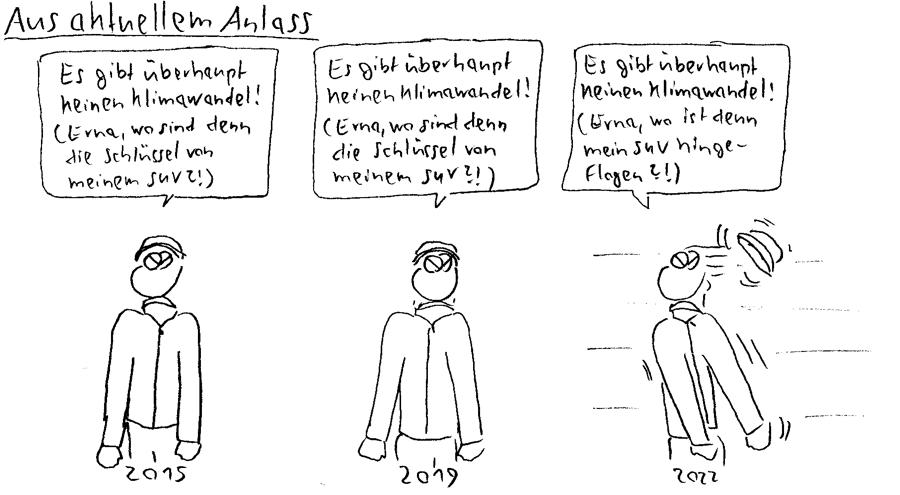 Aus aktuellem Anlass
Es gibt überhaupt
keinen Klimawandel!
(Erna, wo sind denn
die Schlüssel von
meinem SUV?!)
Es gibt überhaupt
keinen Klimawandel!
(Erna, wo sind denn
die Schlüssel von
meinem SUV?!)
Es gibt überhaupt
keinen Klimawandel!
(Erna, wo ist denn
mein SUV hinge-
flogen?!)
2015
2019
2022